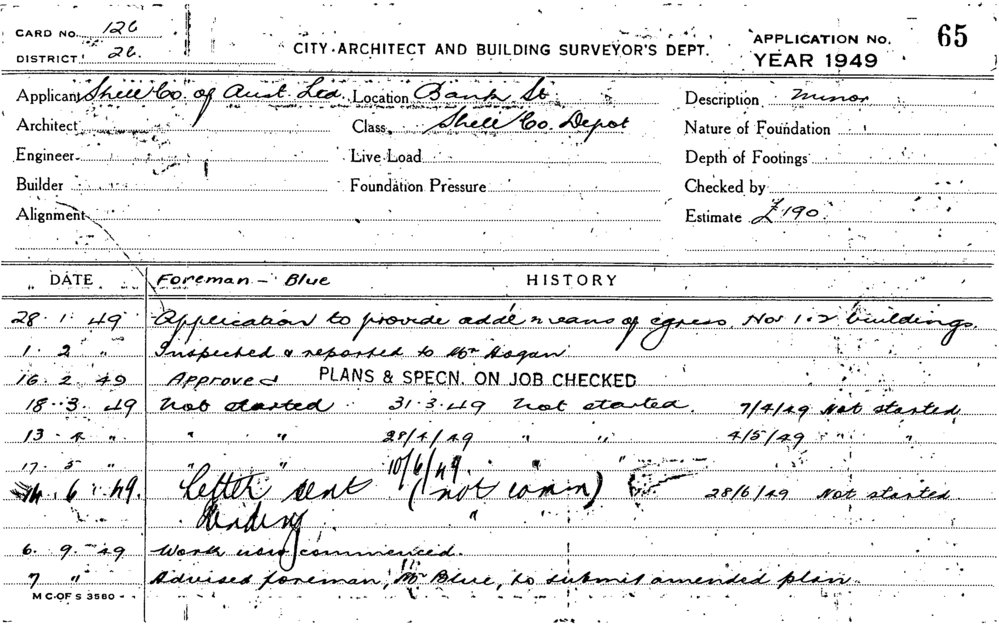 CARD No. 126
DISTRICT 26.
CITY ARCHITECT AND BUILDING SURVEYOR'S DEPT.
APPLICATION No. 65
YEAR 1949
Applicant Shell Co. of Aust. Ltd. Location Bank St Description minor
Architect Class Shell Co. Depot Nature of Foundation
Engineer Live Load Depth of Footings
Builder Foundation Pressure Checked by
Alignment Estimate £190
DATE Foreman - Blue HISTORY
28.1.49 Application to provide addl means of egress. Nos 1 & 2 buildings.
1.2 " Inspected & reported to Mr Hogan
16.2.49 Approved PLANS & SPECN. ON JOB CHECKED
18.3.49 Not started 31.3.49 Not started. 7/4/49 Not started
13.4 " " " 28/4/49 " " 4/5/49 " "
17.5 " " " 10/6/49. " "
14.6.49. Letter sent (not comm) 28/6/49 Not started
Pending "
6.9.49 Work now commenced.
7 " Advised foreman, Mr Blue, to submit amended plan.
M C OF S 3580